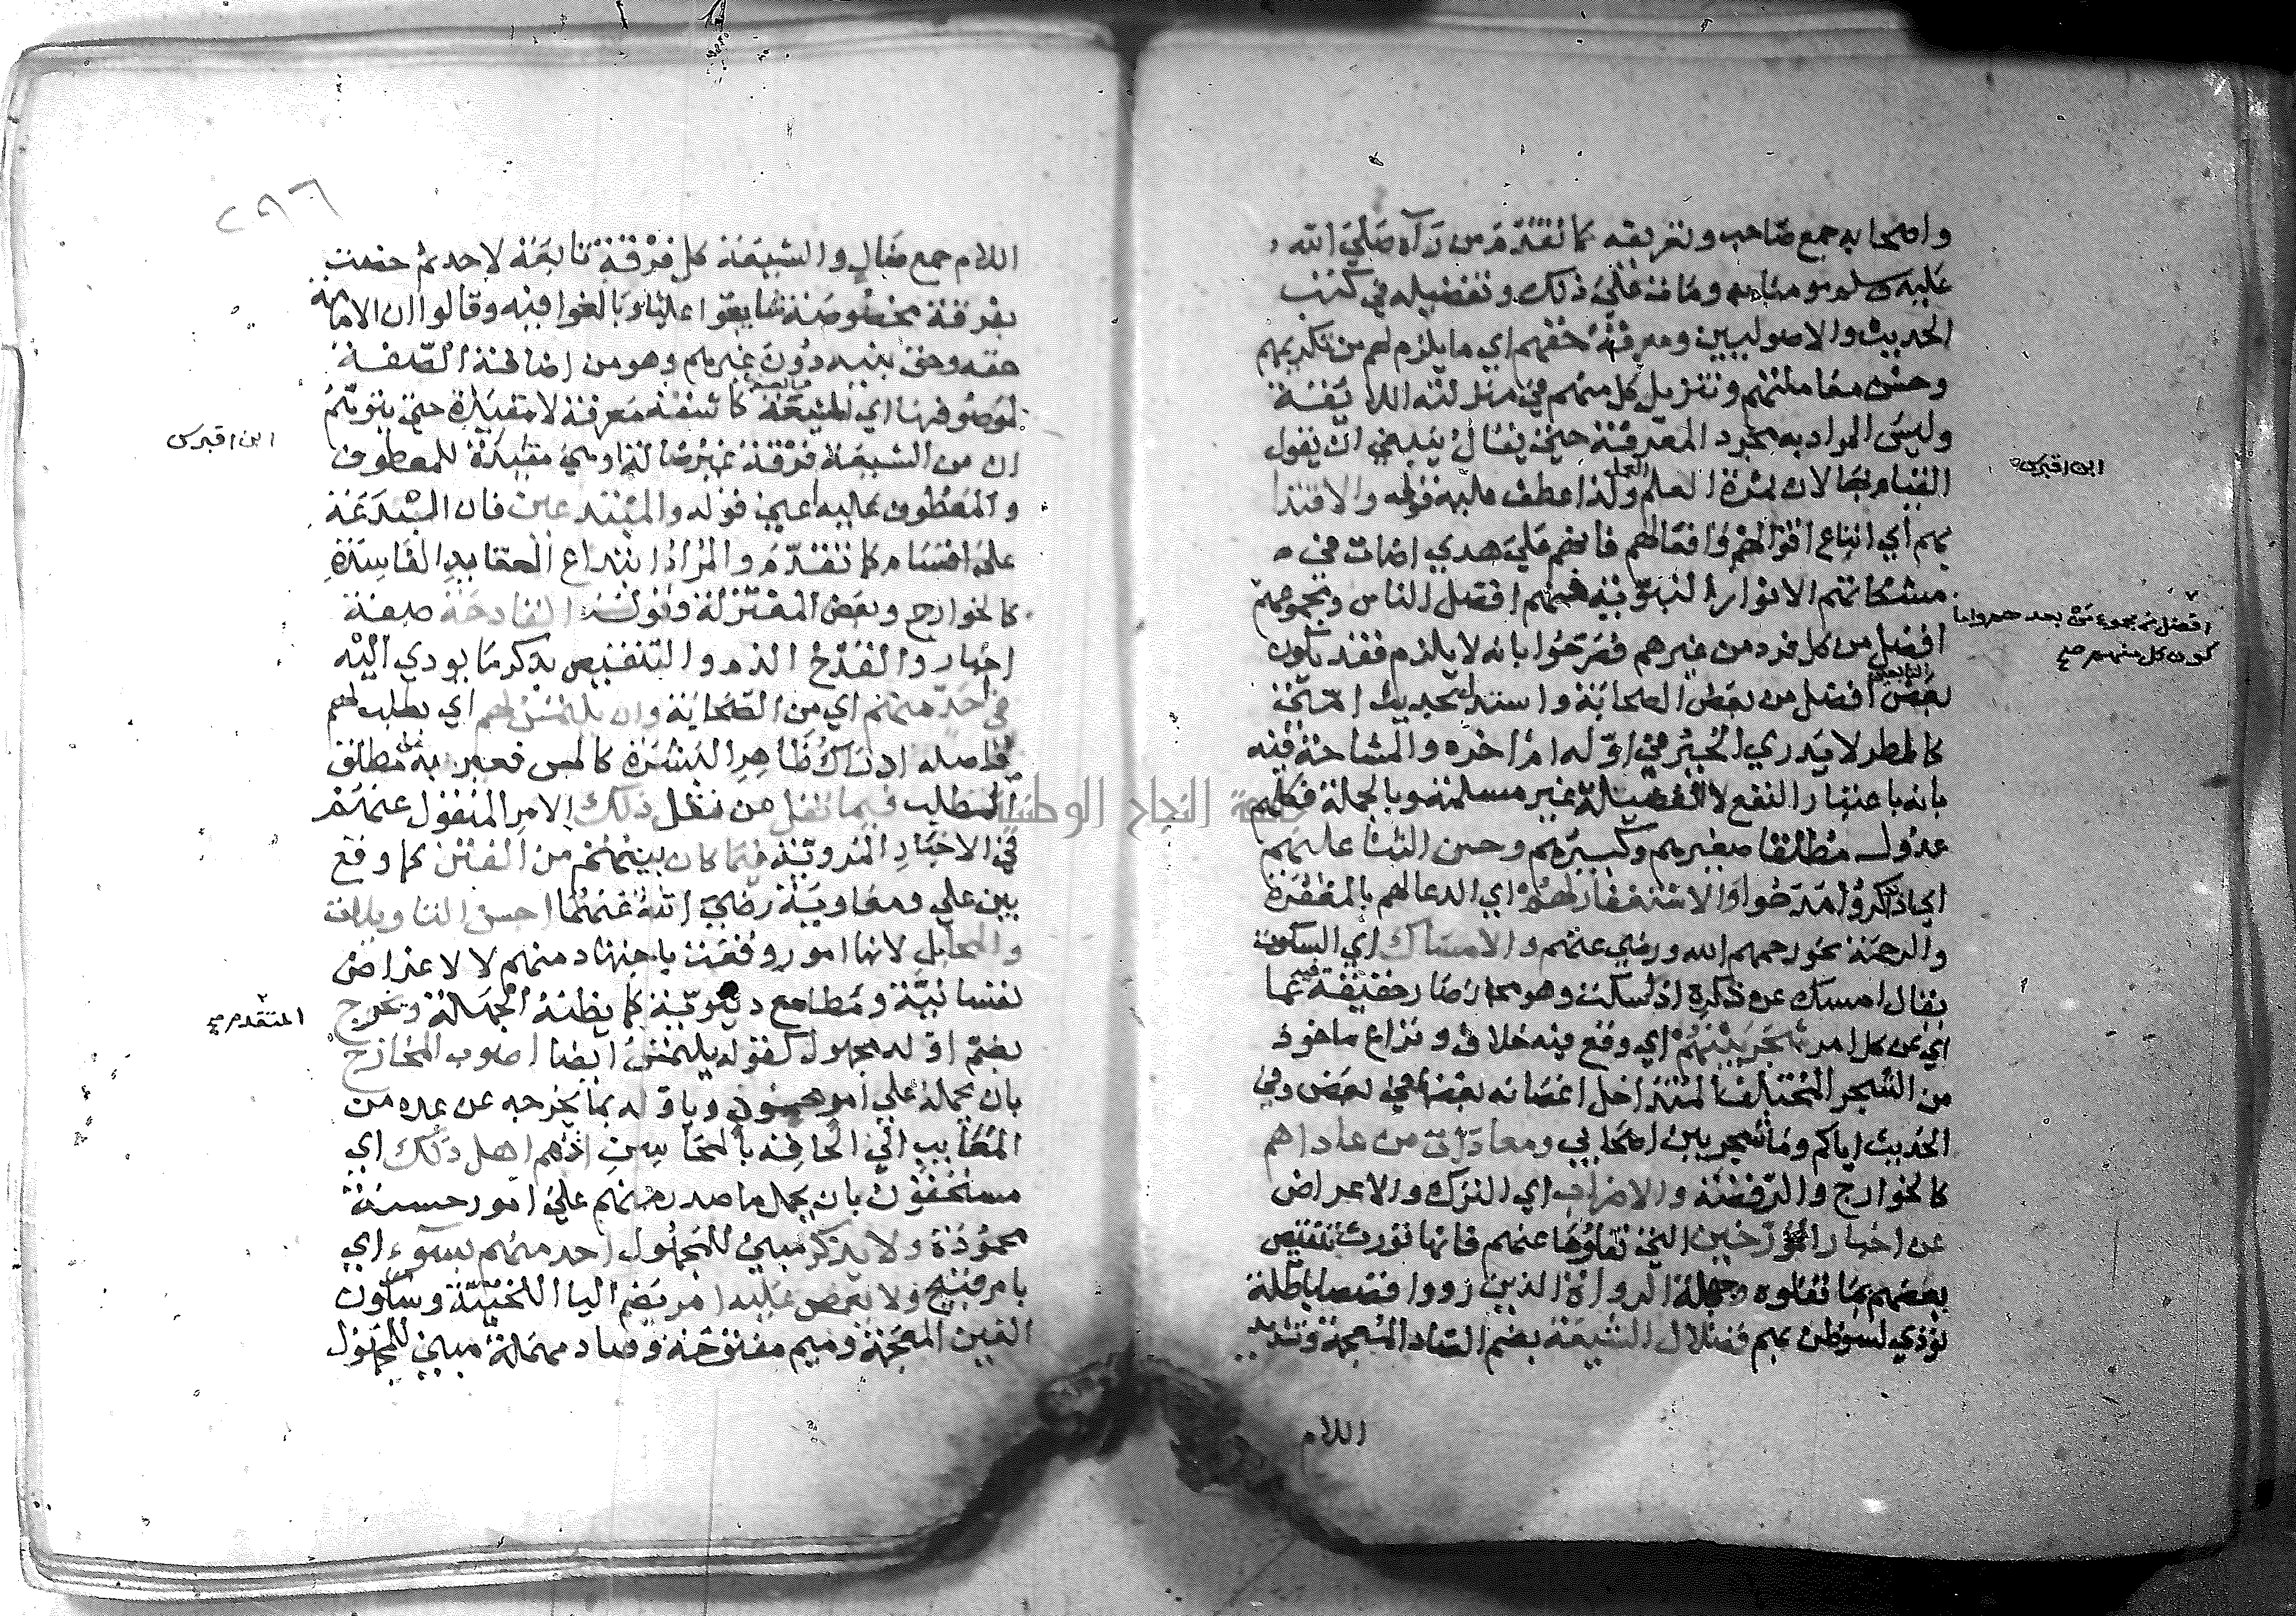 واصحابه جمع صاحب وتعريفه كما تقدم من رآه صلى الله
عليه وسلم مؤمنا به ومات على ذلك وتفصيله في كتب
الحديث والاصوليين ومعرفة حقهم اي ما يلزم لهم من تكريمهم
وحسن معاملتهم وتنزيل كل منهم في منزلته اللايقة
وليس المراد به مجرد المعرفة حتى يقال ينبغي ان يقول
القيام بها لان ثمرة العلم العمل ولذا عطف عليه قوله والاقتدا
بهم اي اتباع اقوالهم وافعالهم فانهم على هدي اضات في
مشكاتهم الانوار النبوية فهم افضل الناس ومجموعهم
افضل من كل فرد من غيرهم فصرحوا بانه لا يلزم فقد يكون
بعض التابعين افضل من بعض الصحابة واستدل بحديث امتي
كالمطر لا يدري الخير في اوله ام اخره والمشاحة فيه
بانه باعتبار النفع لا الفضيلة غير مسلمة وبالجملة فكلهم
عدول مطلقا صغيرهم وكبيرهم وحسن الثنا عليهم
اي اذا ذكروا مدحوا والاستغفار لهم اي الدعا لهم بالمغفرة
والرحمة نحو رحمهم الله ورضي عنهم والامساك اي السكوت
يقال امسك عن ذكره اذا سكت وهو مجاز صار حقيقة فيه عما
اي عن كل امر شجر بينهم اي وقع فيه خلاف ونزاع ماخوذ
من الشجر المختلف لتداخل اغصانه بعضها في بعض وفي
الحديث اياكم وما شجر بين اصحابي ومعاداة من عاداهم
كالخوارج والرفضة والاضراب اي الترك والاعراض
عن اخبار المؤرخين التي نقلوها عنهم فانها تورث تنقيص
بعضهم بما نقلوه وجهلة الرواة الذين رووا قصصا باطلة
تؤدي لسوء ظن بهم وضلال الشيعة بضم الضاد المعجمة وتشديد
اللام
ابن اقبرس
افضل من مجموع من بعدهم واما
كون كل منهم صح
٢٩٦
اللام جمع ضال والشيعة كل فرقة تابعة لاحد ثم خصت
بفرقة مخصوصة شايعوا عليا وبالغوا فيه وقالوا ان الامامة
حقه وحق بنيه دون غيرهم وهو من اضافة الصفة
لموصوفها اي الشيعة الضالة كاشفة معرفة لا مقيدة حتى يتوهم
ان من الشيعة فرقة غير ضالة او هي مقيدة للمعطوف
والمعطوف عليه اعني قوله والمبتدعين فان البدعة
على اقسام كما تقدم والمراد ابتداع العقايد الفاسدة
كالخوارج وبعض المعتزلة وقوله القادحة صفة
اخبار والقدح الذم والتنقيص بذكر ما يودي اليه
في احد منهم اي من الصحابة وان يلتمس لهم اي يطلب لهم
واصله ادراك ظاهر البشرة كاللمس فعبر به عن مطلق
الطلب فيما نقل من مثل ذلك الامر المنقول عنهم
في الاخبار المروية فيما كان بينهم من الفتن كما وقع
بين علي ومعاوية رضي الله عنهما احسن التاويلات
والمحامل لانها امور وقعت باجتهاد منهم لا لاغراض
نفسانية ومطامع دنيوية كما يظنه الجهلة ويخرج
بضم اوله مجهول كقوله يلتمس ايضا اصوب المخارج
بان يحمله على امر حسن وياوله بما يخرجه عن عده من
المعايب الى الحاقه بالمحاسن اذ هم اهل ذلك اي
مستحقون بان يحمل ما صدر منهم على امور حسنة
محمودة ولا يذكر مبني للمجهول احد منهم بسوء اي
بامر قبيح ولا يغمص عليه امر بضم اليا التحتية وسكون
الغين المعجمة وميم مفتوحة وصاد مهملة مبني للمجهول
ابن اقبرس
المتقدم صح
جامعة النجاح الوطنية